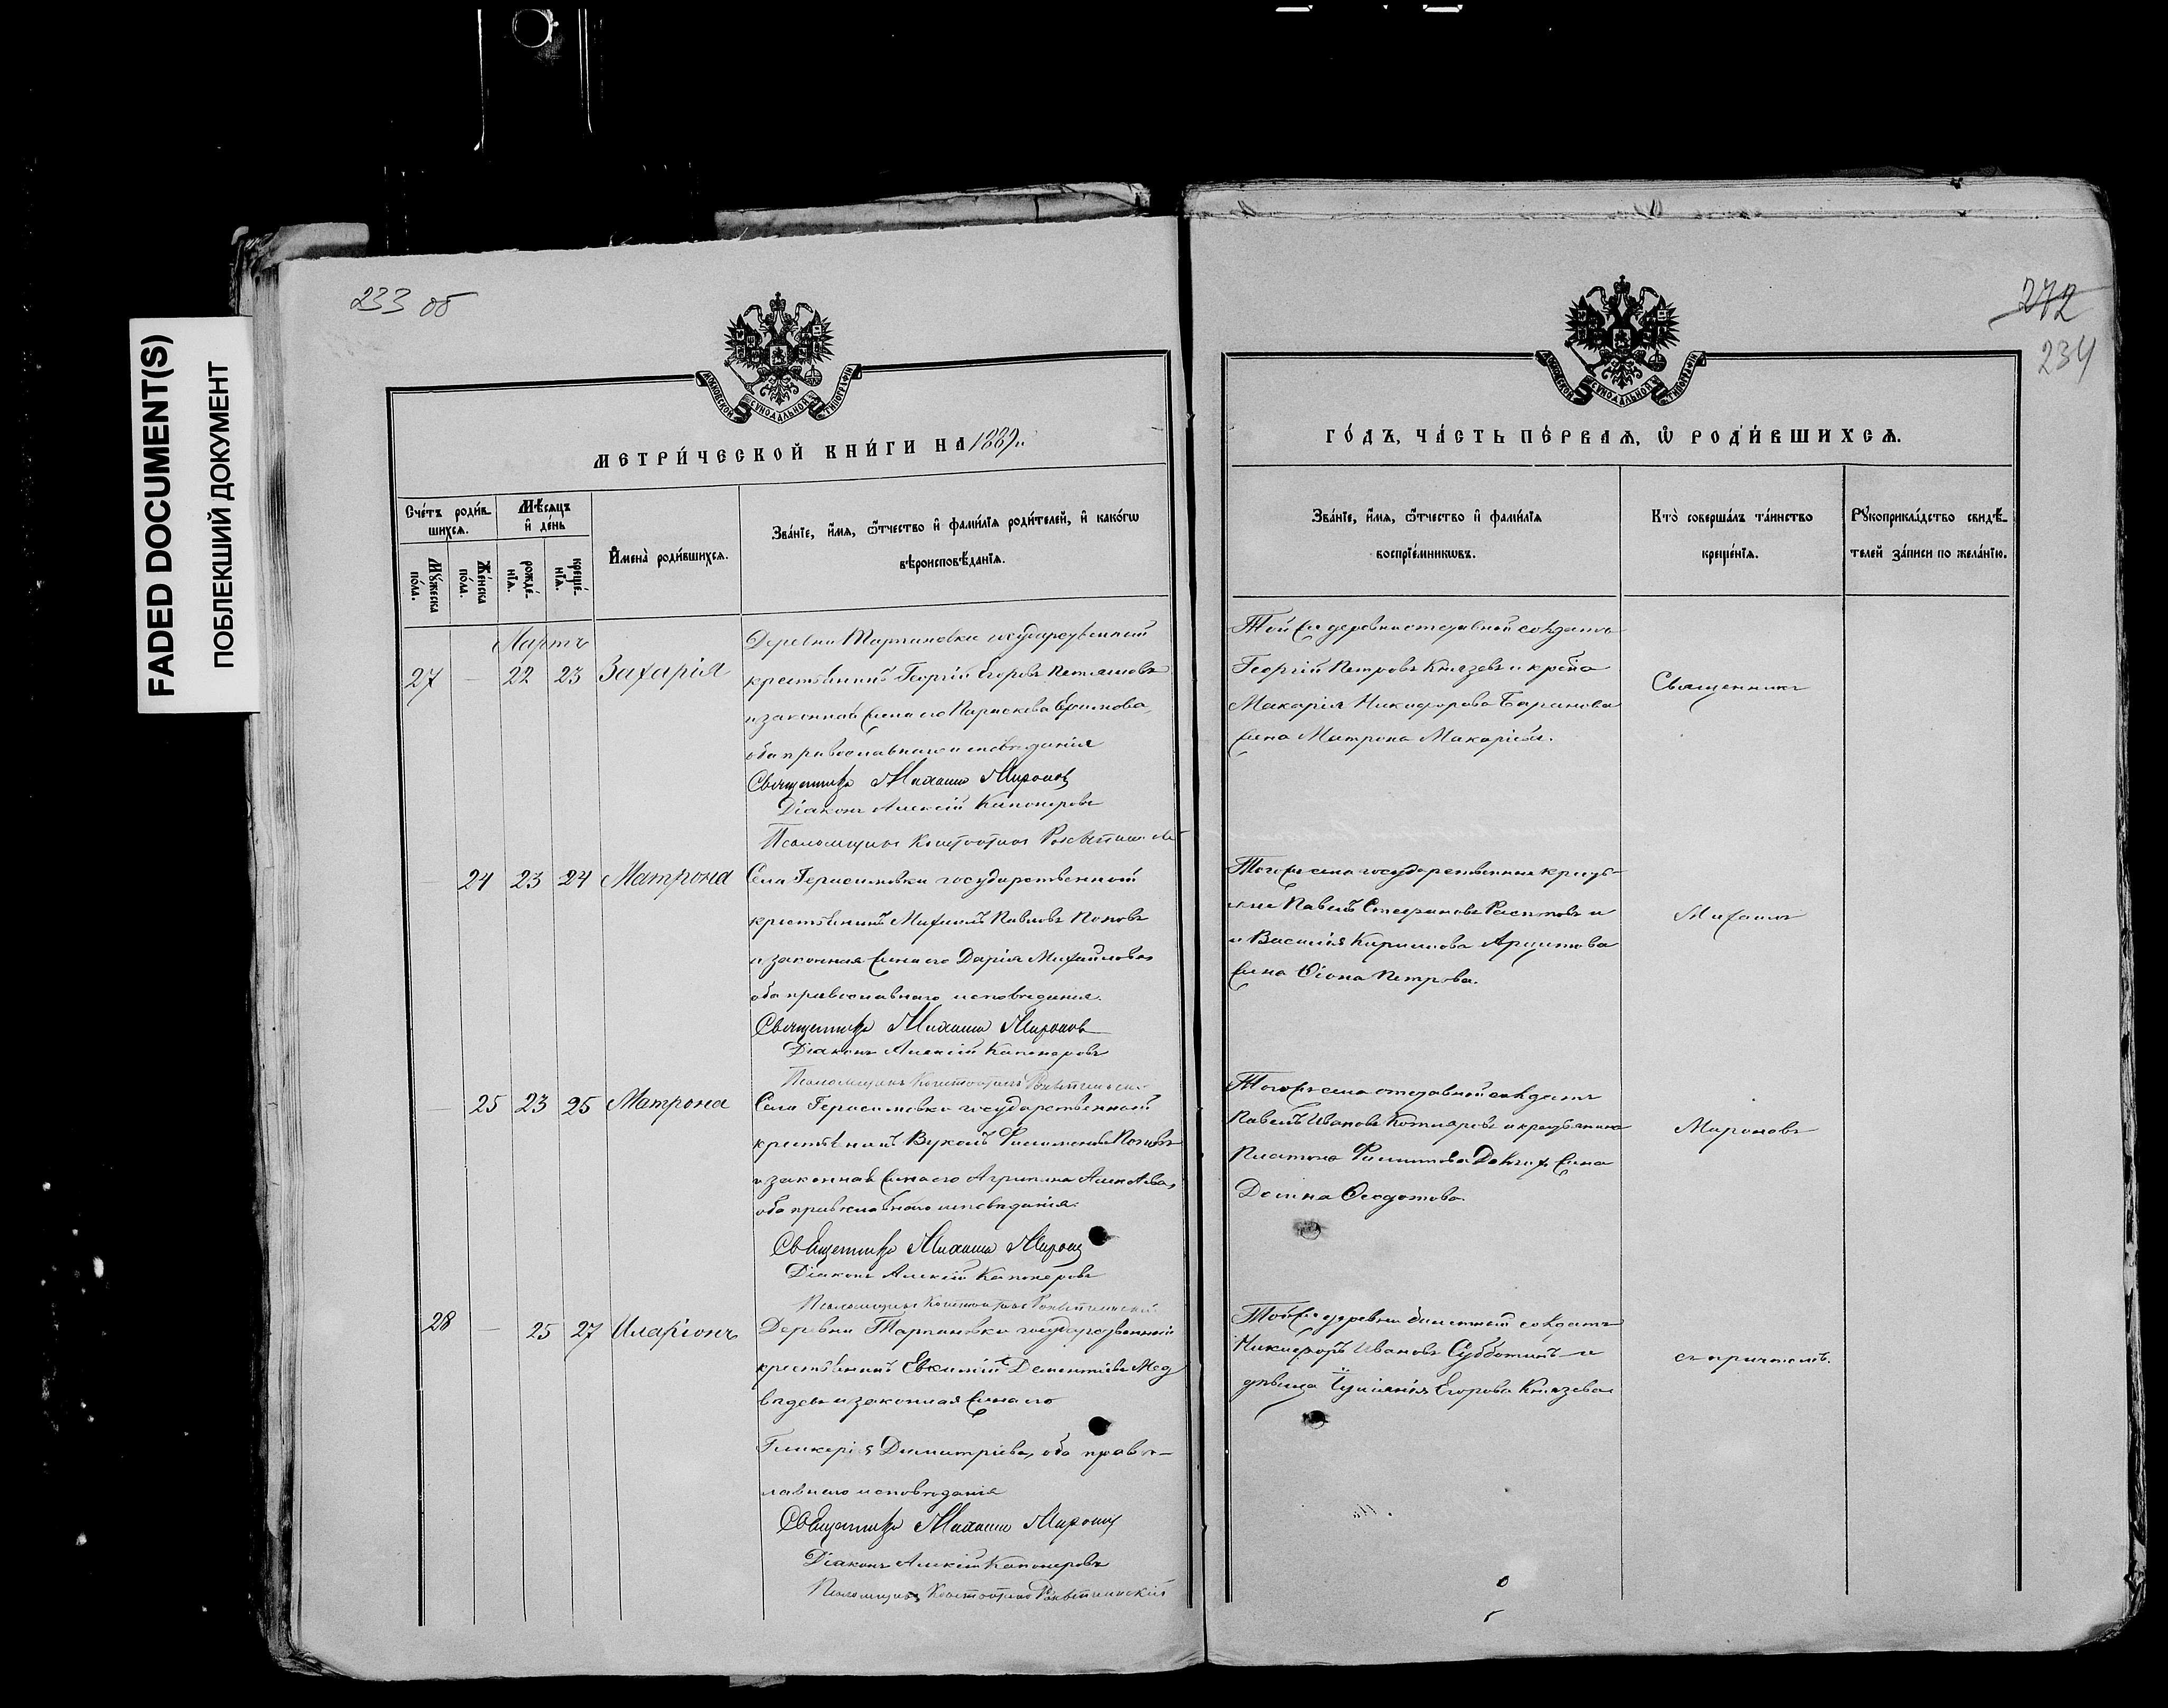 FADED DOCUMENT(S)
ПОБЛЕКШИЙ ДОКУМЕНТ
233 об
МОСКОВСКОЙ СУНОДАЛЬНОЙ ТИПОГРАФІИ
МЕТРИ́ЧЕСКОЙ КНИ́ГИ НА 1889 г.
Сче́тъ роди́вшихсѧ.
Мꙋ́жеска по́ла.
Же́нска по́ла.
Мѣ́сѧцъ и҆ де́нь
рожде́нїѧ.
креще́нїѧ.
И҆мена̀ роди́вшихсѧ.
Зва́нїе, и҆́мѧ, ѻ҆́тчество и҆ фами́лїѧ роди́телей, и҆ како́гѡ
вѣроисповѣ́данїѧ.
Мартъ
27 — 22 23 Захарія
Деревни государственный
крестьянинъ Георгій Егоровъ
и законная жена его Параскева
оба православнаго исповѣданія
Священникъ Михаилъ Мироновъ
Діаконъ Алексій Капонеровъ
Псаломщикъ
— 24 23 24 Матрона
Села Герасимовки государственный
крестьянинъ Михаилъ Павловъ Поповъ
и законная жена его Дарія Михайлова
оба православнаго исповѣданія.
Священникъ Михаилъ Мироновъ
Діаконъ Алексій Капонеровъ
Псаломщикъ
— 25 23 25 Матрона
Села Герасимовки государственный
крестьянинъ Вуколъ Филимоновъ
и законная жена его Агрипина
оба православнаго исповѣданія.
Священникъ Михаилъ Мироновъ
Діаконъ Алексій Капонеровъ
Псаломщикъ
28 — 25 27 Иларіонъ
Деревни государственный
крестьянинъ Евфимій Дементіевъ Мед
вѣдевъ и законная жена его
Гликерія Димитріева, оба правос-
лавнаго исповѣданія
Священникъ Михаилъ Мироновъ
Діаконъ Алексій Капонеровъ
Псаломщикъ
272
234
МОСКОВСКОЙ СУНОДАЛЬНОЙ ТИПОГРАФІИ
ГО́ДЪ, ЧА́СТЬ ПЕ́РВАѦ, Ѡ҆ РОДИ́ВШИХСѦ.
Зва́нїе, и҆́мѧ, ѻ҆́тчество и҆ фами́лїѧ
воспрїе́мникѡвъ.
Кто̀ соверша́лъ та́инство
креще́нїѧ.
Рꙋкоприкла́дство свидѣ́-
телей за́писи по жела́нїю.
Той же деревни отставной солдатъ
Георгій Петровъ Князевъ и крест̃ина
Макарія Никифорова Баранова
жена Матрона
Священникъ
Того же села государственные кресть-
яне Павелъ Стефановъ и
и Василія Кириллова
жена Петрова.
Михаилъ
Того же села отставной солдатъ
Павелъ Ивановъ Котляровъ и крестьянина
Платона Филиппова жена
Домна Ѳеодотова.
Мироновъ
Той же деревни билетный солдатъ
Никифоръ Ивановъ Субботинъ и
дѣвица Егорова Князева
съ причтомъ.